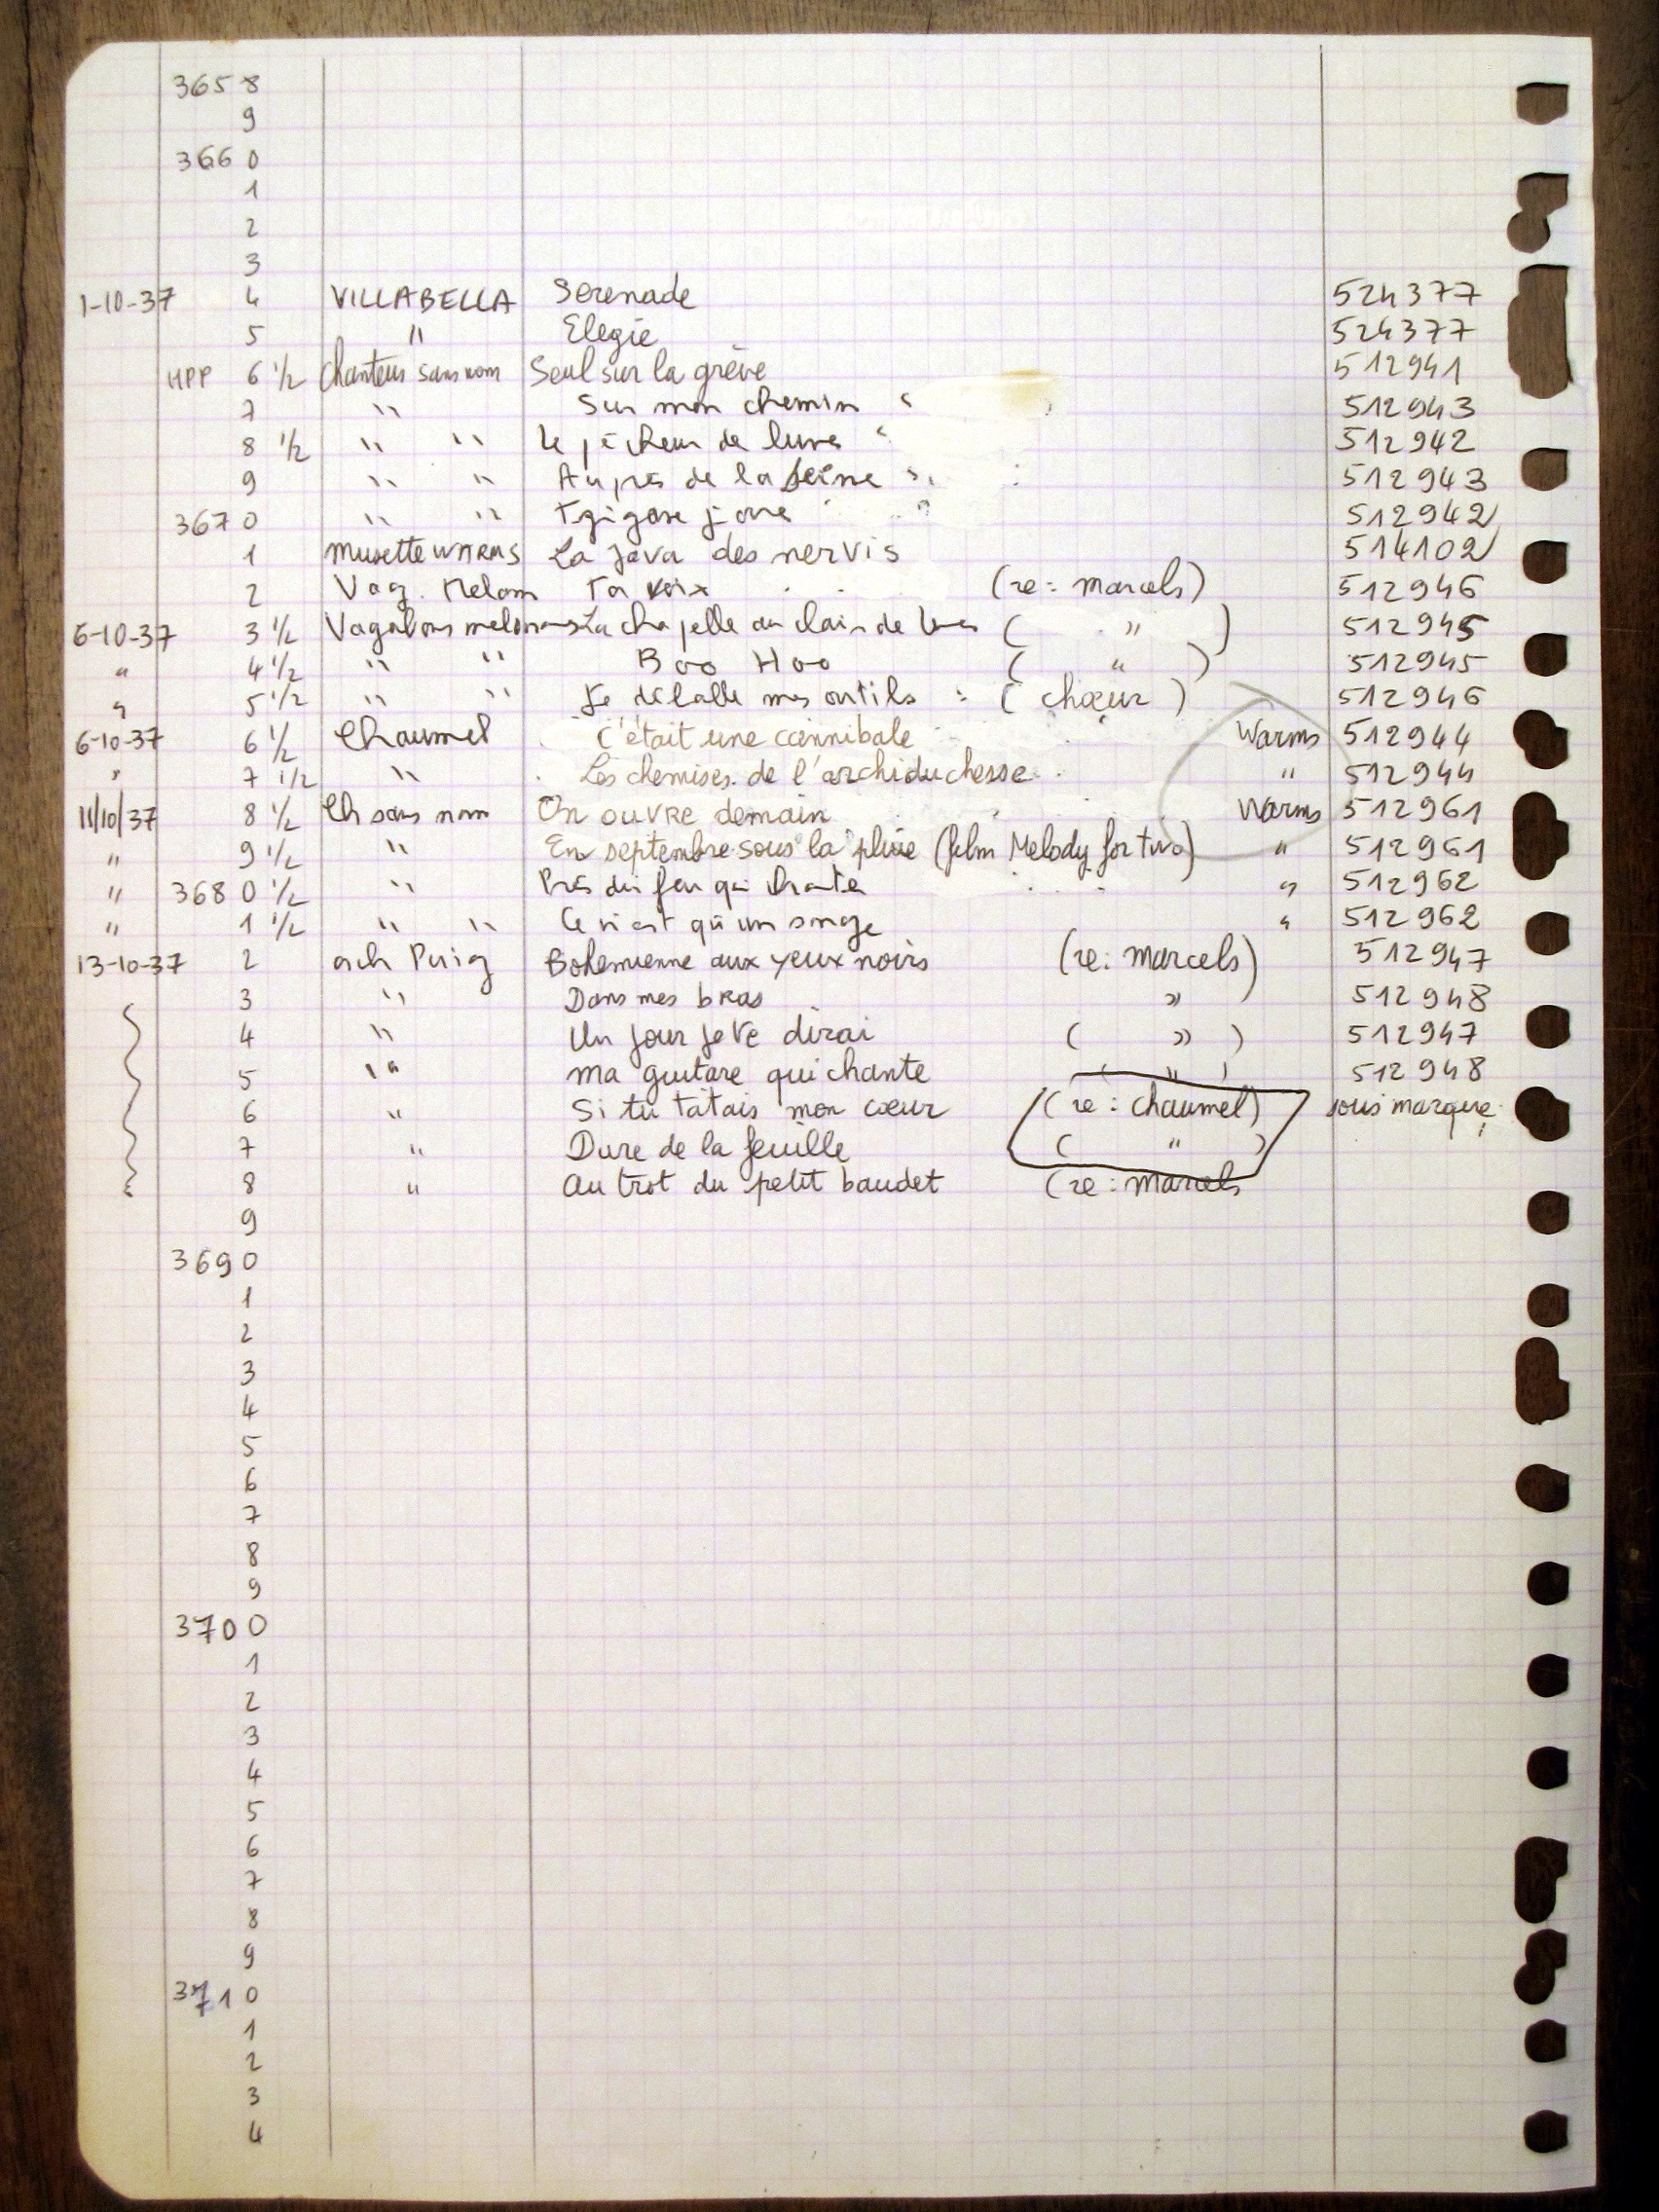 3658
9
3660
1
2
3
1-10-37 4 VILLABELLA Serenade 524377
5 " Elegie 524377
HPP 6 1/2 Chanteus sans nom Seul sur la grève 512941
7 " Sur mon chemin " 512943
8 1/2 " " Le pêcheur de lune " 512942
9 " " Auprès de la Seine " 512943
3670 " " 512942
1 Musette WARMS La Java des nervis 514102
2 Vag. Melom Ta voix (re: marcels) 512946
6-10-37 3 1/2 Vagabons melomans La chapelle au clair de lune ( " ) 512945
" 4 1/2 " " Boo Hoo ( " ) 512945
" 5 1/2 " " Je déballe mes outils : ( chœur ) 512946
6-10-37 6 1/2 Chaumel C'était une cannibale Warms 512944
" 7 1/2 " Les chemises de l'archiduchesse " 512944
11/10/37 8 1/2 Ch sans nom On ouvre demain Warms 512961
" 9 1/2 " En septembre sous la pluie (film Melody for two) " 512961
" 3680 1/2 " Près du feu qui chante " 512962
" 1 1/2 " " Ce n'est qu'un songe " 512962
13-10-37 2 orch Puig Bohemienne aux yeux noirs (re: marcels) 512947
3 " Dans mes bras " ) 512948
4 " Un jour je te dirai ( " ) 512947
5 " ma guitare qui chante ( " ) 512948
6 " Si tu tatais mon cœur (re: chaumel) sous marque
7 " Dure de la feuille ( " )
8 " au trot du petit baudet (re: marcels
9
3690
1
2
3
4
5
6
7
8
9
3700
1
2
3
4
5
6
7
8
9
3710
1
2
3
4